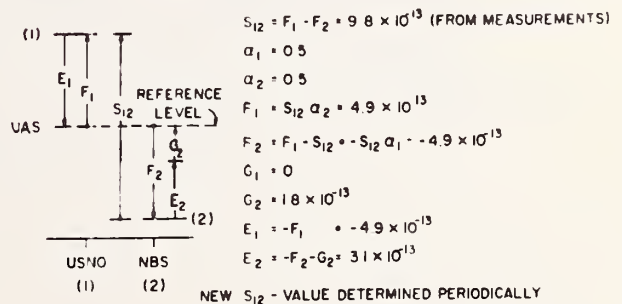 (1)
E₁ F₁
S₁₂
REFERENCE
LEVEL
UAS
G₂
F₂
E₂
(2)
USNO NBS
(1) (2)
S₁₂ = F₁ - F₂ = 9.8 × 10⁻¹³ (FROM MEASUREMENTS)
α₁ = 0.5
α₂ = 0.5
F₁ = S₁₂ α₂ = 4.9 × 10⁻¹³
F₂ = F₁ - S₁₂ = -S₁₂ α₁ = -4.9 × 10⁻¹³
G₁ = 0
G₂ = 1.8 × 10⁻¹³
E₁ = -F₁ = -4.9 × 10⁻¹³
E₂ = -F₂ - G₂ = 3.1 × 10⁻¹³
NEW S₁₂ - VALUE DETERMINED PERIODICALLY